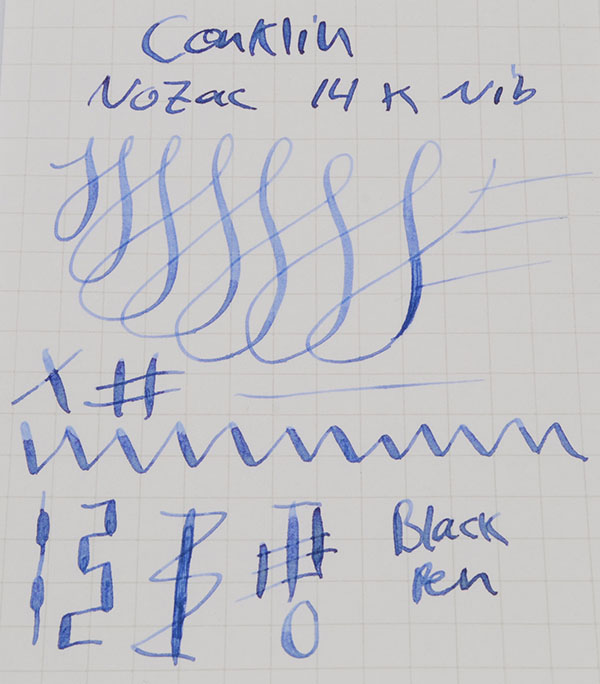 Conklin
Nozac 14 K Nib
X #
Black
Pen